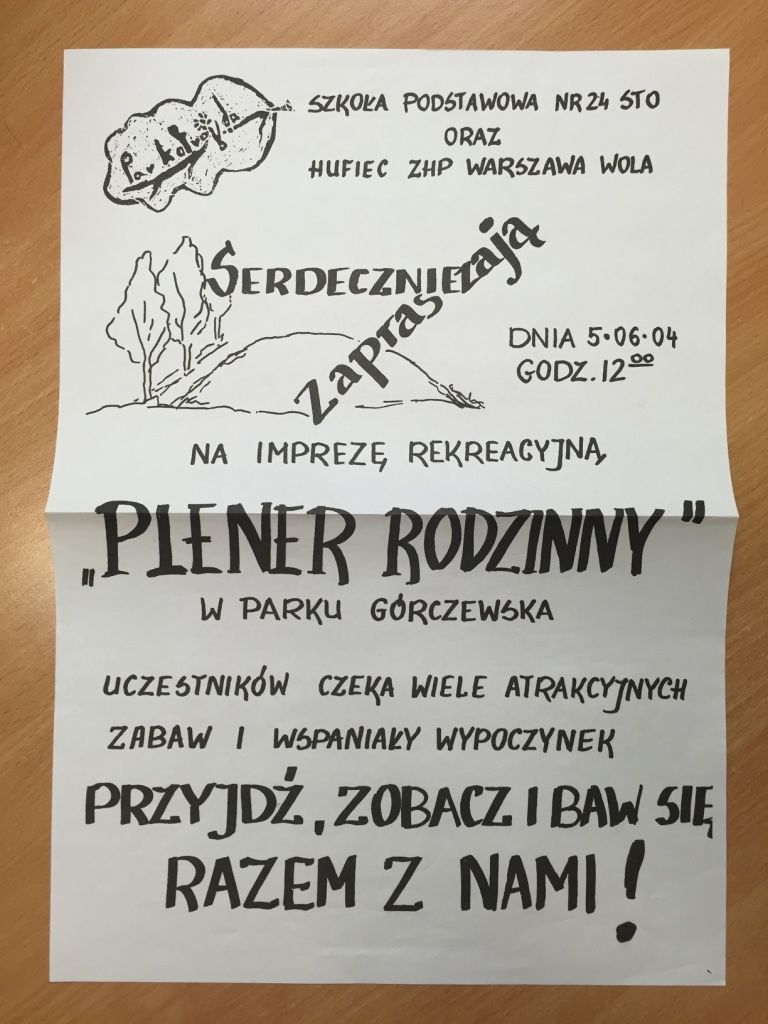 SZKOŁA PODSTAWOWA NR 24 STO
ORAZ
HUFIEC ZHP WARSZAWA WOLA
SERDECZNIE
zapraszają
DNIA 5·06·04
GODZ. 12⁰⁰
NA IMPREZĘ REKREACYJNĄ
„PLENER RODZINNY"
W PARKU GÓRCZEWSKA
UCZESTNIKÓW CZEKA WIELE ATRAKCYJNYCH
ZABAW I WSPANIAŁY WYPOCZYNEK
PRZYJDŹ, ZOBACZ I BAW SIĘ
RAZEM Z NAMI!